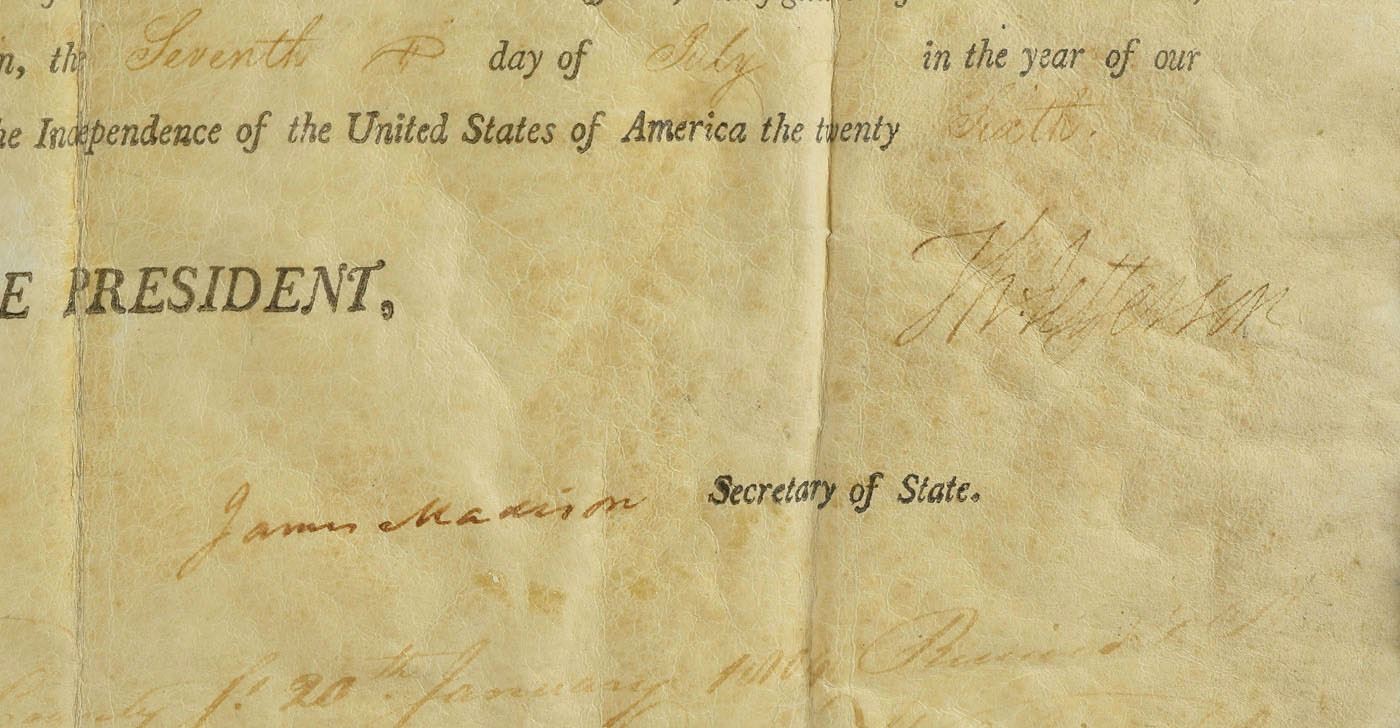 n, the Seventh day of July in the year of our
he Independence of the United States of America the twenty Sixth.
E PRESIDENT,
Th: Jefferson
James Madison Secretary of State.
20th January